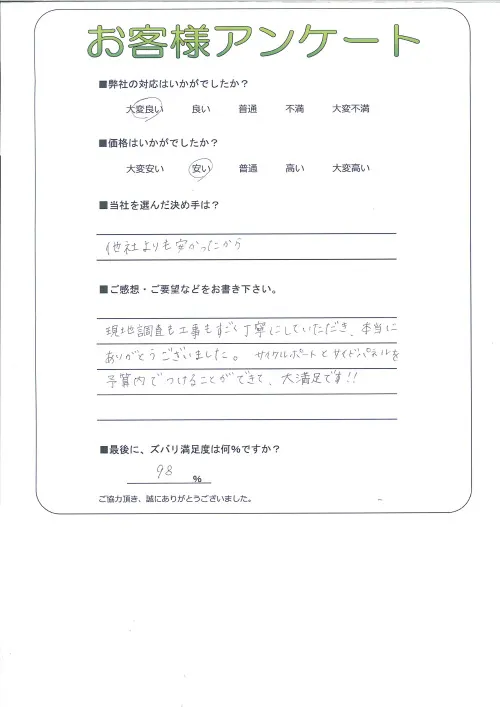 お客様アンケート
■弊社の対応はいかがでしたか？
大変良い 良い 普通 不満 大変不満
■価格はいかがでしたか？
大変安い 安い 普通 高い 大変高い
■当社を選んだ決め手は？
他社よりも安かったから
■ご感想・ご要望などをお書き下さい。
現地調査も工事もすごく丁寧にしていただき、本当に
ありがとうございました。 サイクルポートとサイドパネルを
予算内でつけることができて、大満足です!!
■最後に、ズバリ満足度は何%ですか？
98 %
ご協力頂き、誠にありがとうございました。